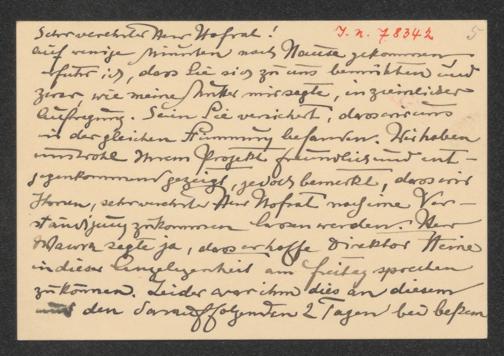 Sehr verehrter Herr Hofrat! J. N. 78342 5
auf wenige Minuten nach Hause gekommen
erfuhr ich, dass Sie sich zu uns bemühten und
zwar, wie meine Mutter mir sagte, in ziemlicher
Aufregung. Seien Sie versichert, dass wir uns
in der gleichen Stimmung befanden. Wir haben
uns wohl Ihrem Projekt freundlich und ent-
gegenkommend gezeigt, jedoch bemerkt, dass wir
Ihnen, sehr verehrter Herr Hofrat noch eine Ver-
ständigung zukommen lassen werden. Herr
Wawra sagte ja, dass er hoffe Direktor
in dieser Angelegenheit am Freitag sprechen
zu können. Leider war ihm dies an diesem
und den darauffolgenden 2 Tagen bei bestem